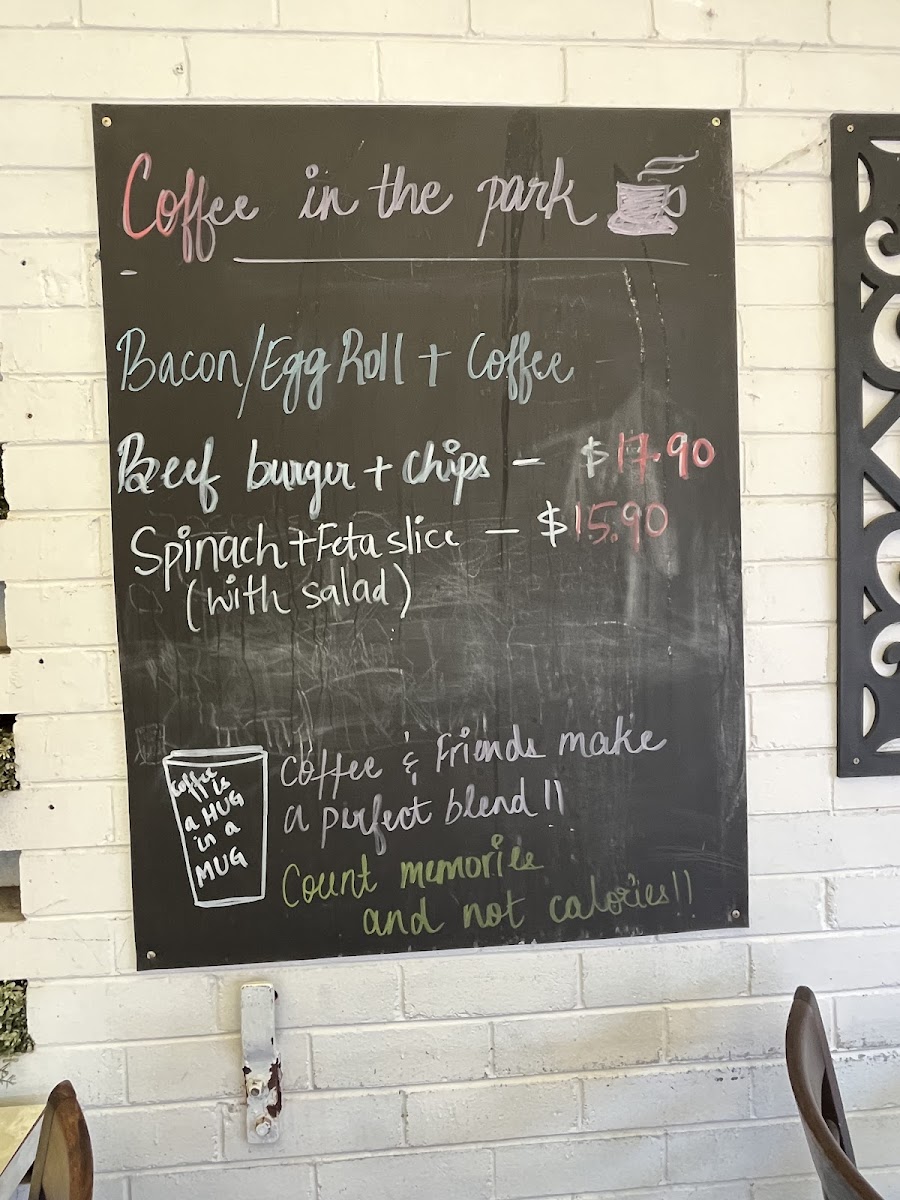 Coffee in the park
Bacon/Egg Roll + Coffee
Beef burger + chips - $17.90
Spinach + Feta slice - $15.90
(with salad)
Coffee & Friends make
a perfect blend!!
Count memories
and not calories!!
Coffee
is
a HUG
in a
MUG